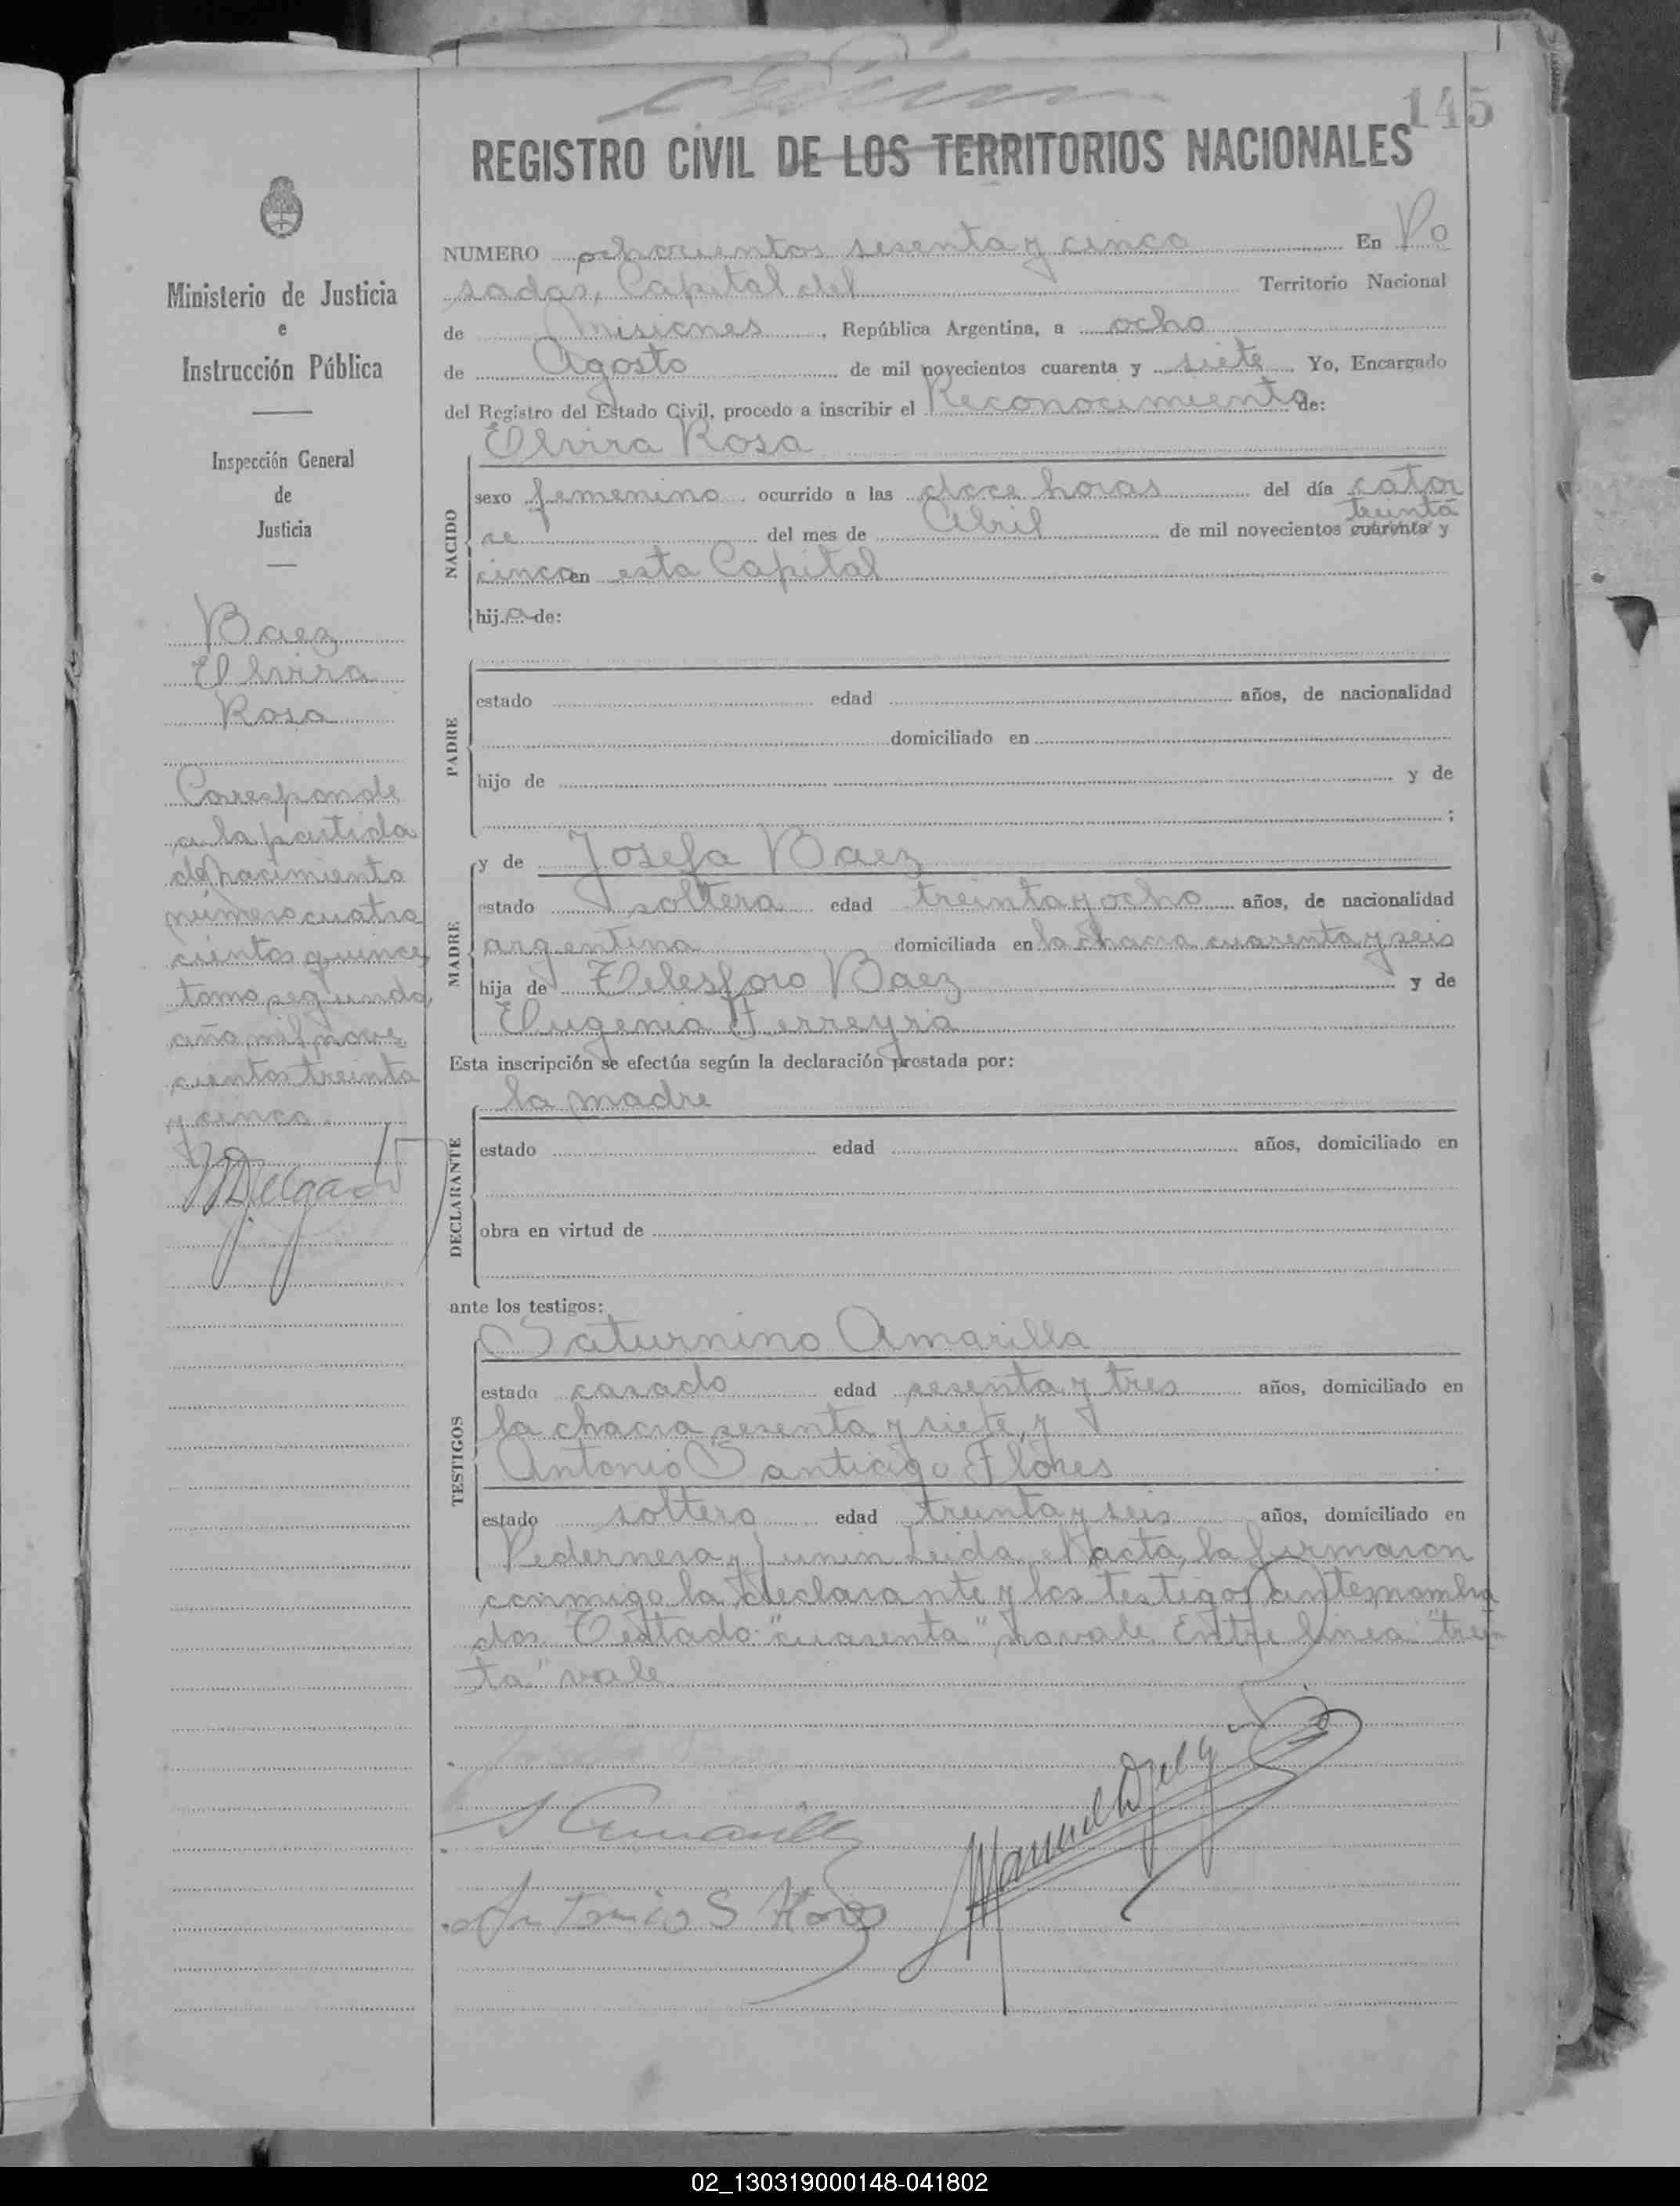 145
REGISTRO CIVIL DE LOS TERRITORIOS NACIONALES
Ministerio de Justicia
e
Instrucción Pública
Inspección General
de
Justicia
Baez
Elvira
Rosa
Corresponde
a la partida
de nacimiento
número cuatro
cientos quince,
tomo segundo,
año mil nove
cientos treinta
y cinco.
MDelgado
NUMERO ochocientos sesenta y cinco En Po
sadas, Capital del Territorio Nacional
de Misiones, República Argentina, a ocho
de Agosto de mil novecientos cuarenta y siete Yo, Encargado
del Registro del Estado Civil, procedo a inscribir el Reconocimiento de:
Elvira Rosa
NACIDO
sexo femenino, ocurrido a las doce horas del día cator
treinta
ce del mes de Abril de mil novecientos cuarenta y
cinco en esta Capital
hija de:
PADRE
estado edad años, de nacionalidad
domiciliado en
hijo de y de
;
MADRE
y de Josefa Baez
estado soltera edad treinta y ocho años, de nacionalidad
argentina domiciliada en la chacra cuarenta y seis
hija de Telesforo Baez y de
Eugenia Ferreyra
Esta inscripción se efectúa según la declaración prestada por:
DECLARANTE
la madre
estado edad años, domiciliado en
obra en virtud de
ante los testigos:
TESTIGOS
Saturnino Amarilla
estado casado edad sesenta y tres años, domiciliado en
la chacra sesenta y siete, y
Antonio Santiago Flores
estado soltero edad treinta y seis años, domiciliado en
Pedernera y Junin Leida el acta, la firmaron
conmigo la declarante y los testigos antenombra
dos. Testado: "cuarenta", no vale. Entre linea "trein
ta" vale
S Amarilla
Manuel Delgado
Antonio S Flores
02_130319000148-041802